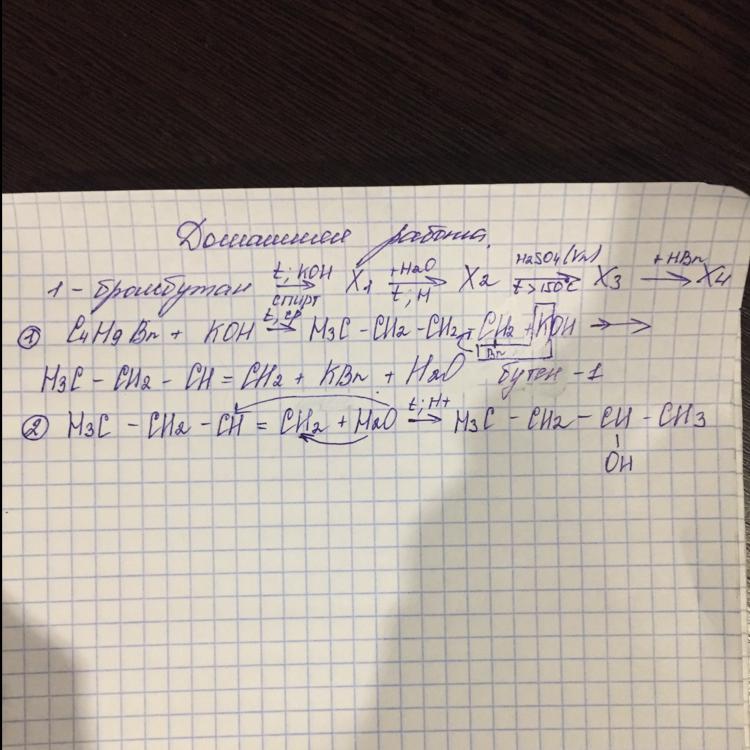 Домашняя работа.
1 - бромбутан t; KOH спирт → X1 +H2O t; H → X2 H2SO4 t > 150°C → X3 + HBr → X4
① C4H9Br + KOH t; сп → H3C - CH2 - CH2 - CH2 + KOH →
Br
H3C - CH2 - CH = CH2 + KBr + H2O бутен - 1
② H3C - CH2 - CH = CH2 + H2O t; H+ → H3C - CH2 - CH - CH3
OH